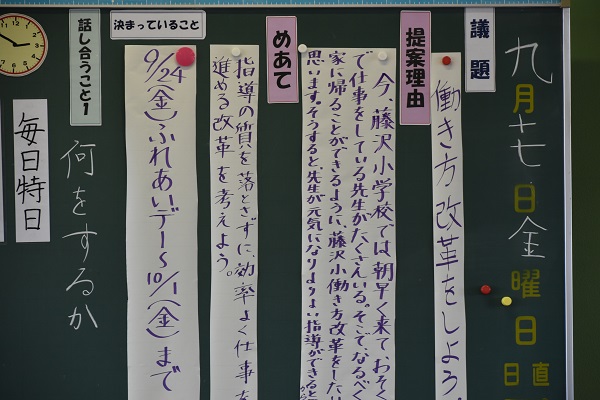 九月十七日金曜日
直
日
議題
働き方改革をしよう。
提案理由
今、藤沢小学校では朝早く来ておそく
で仕事をしている先生がたくさんいる。そこでなるべく
家に帰ることができるように、藤沢小働き方改革をしたい
思います。そうすると、先生が元気になりよりよい指導ができると
めあて
指導の質を落とさずに、効率よく仕事を
進める改革を考えよう。
決まっていること
9/24(金)ふれあいデー〜10/1(金)まで
話し合うこと1
何をするか
毎日特日